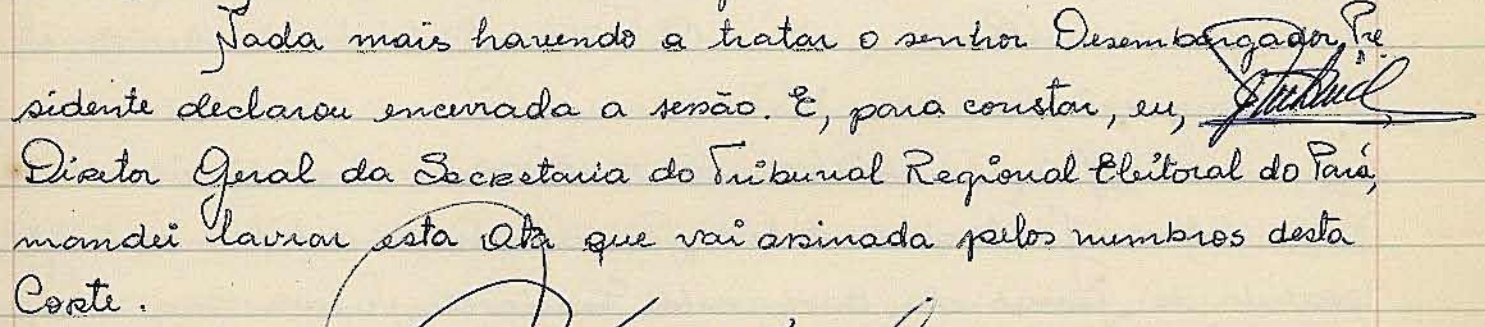 Nada mais havendo a tratar o senhor Desembargador Pre
sidente declarou encerrada a sessão. E, para constar, eu,
Diretor Geral da Secretaria do Tribunal Regional Eleitoral do Pará,
mandei lavrar esta Ata que vai assinada pelos membros desta
Corte.